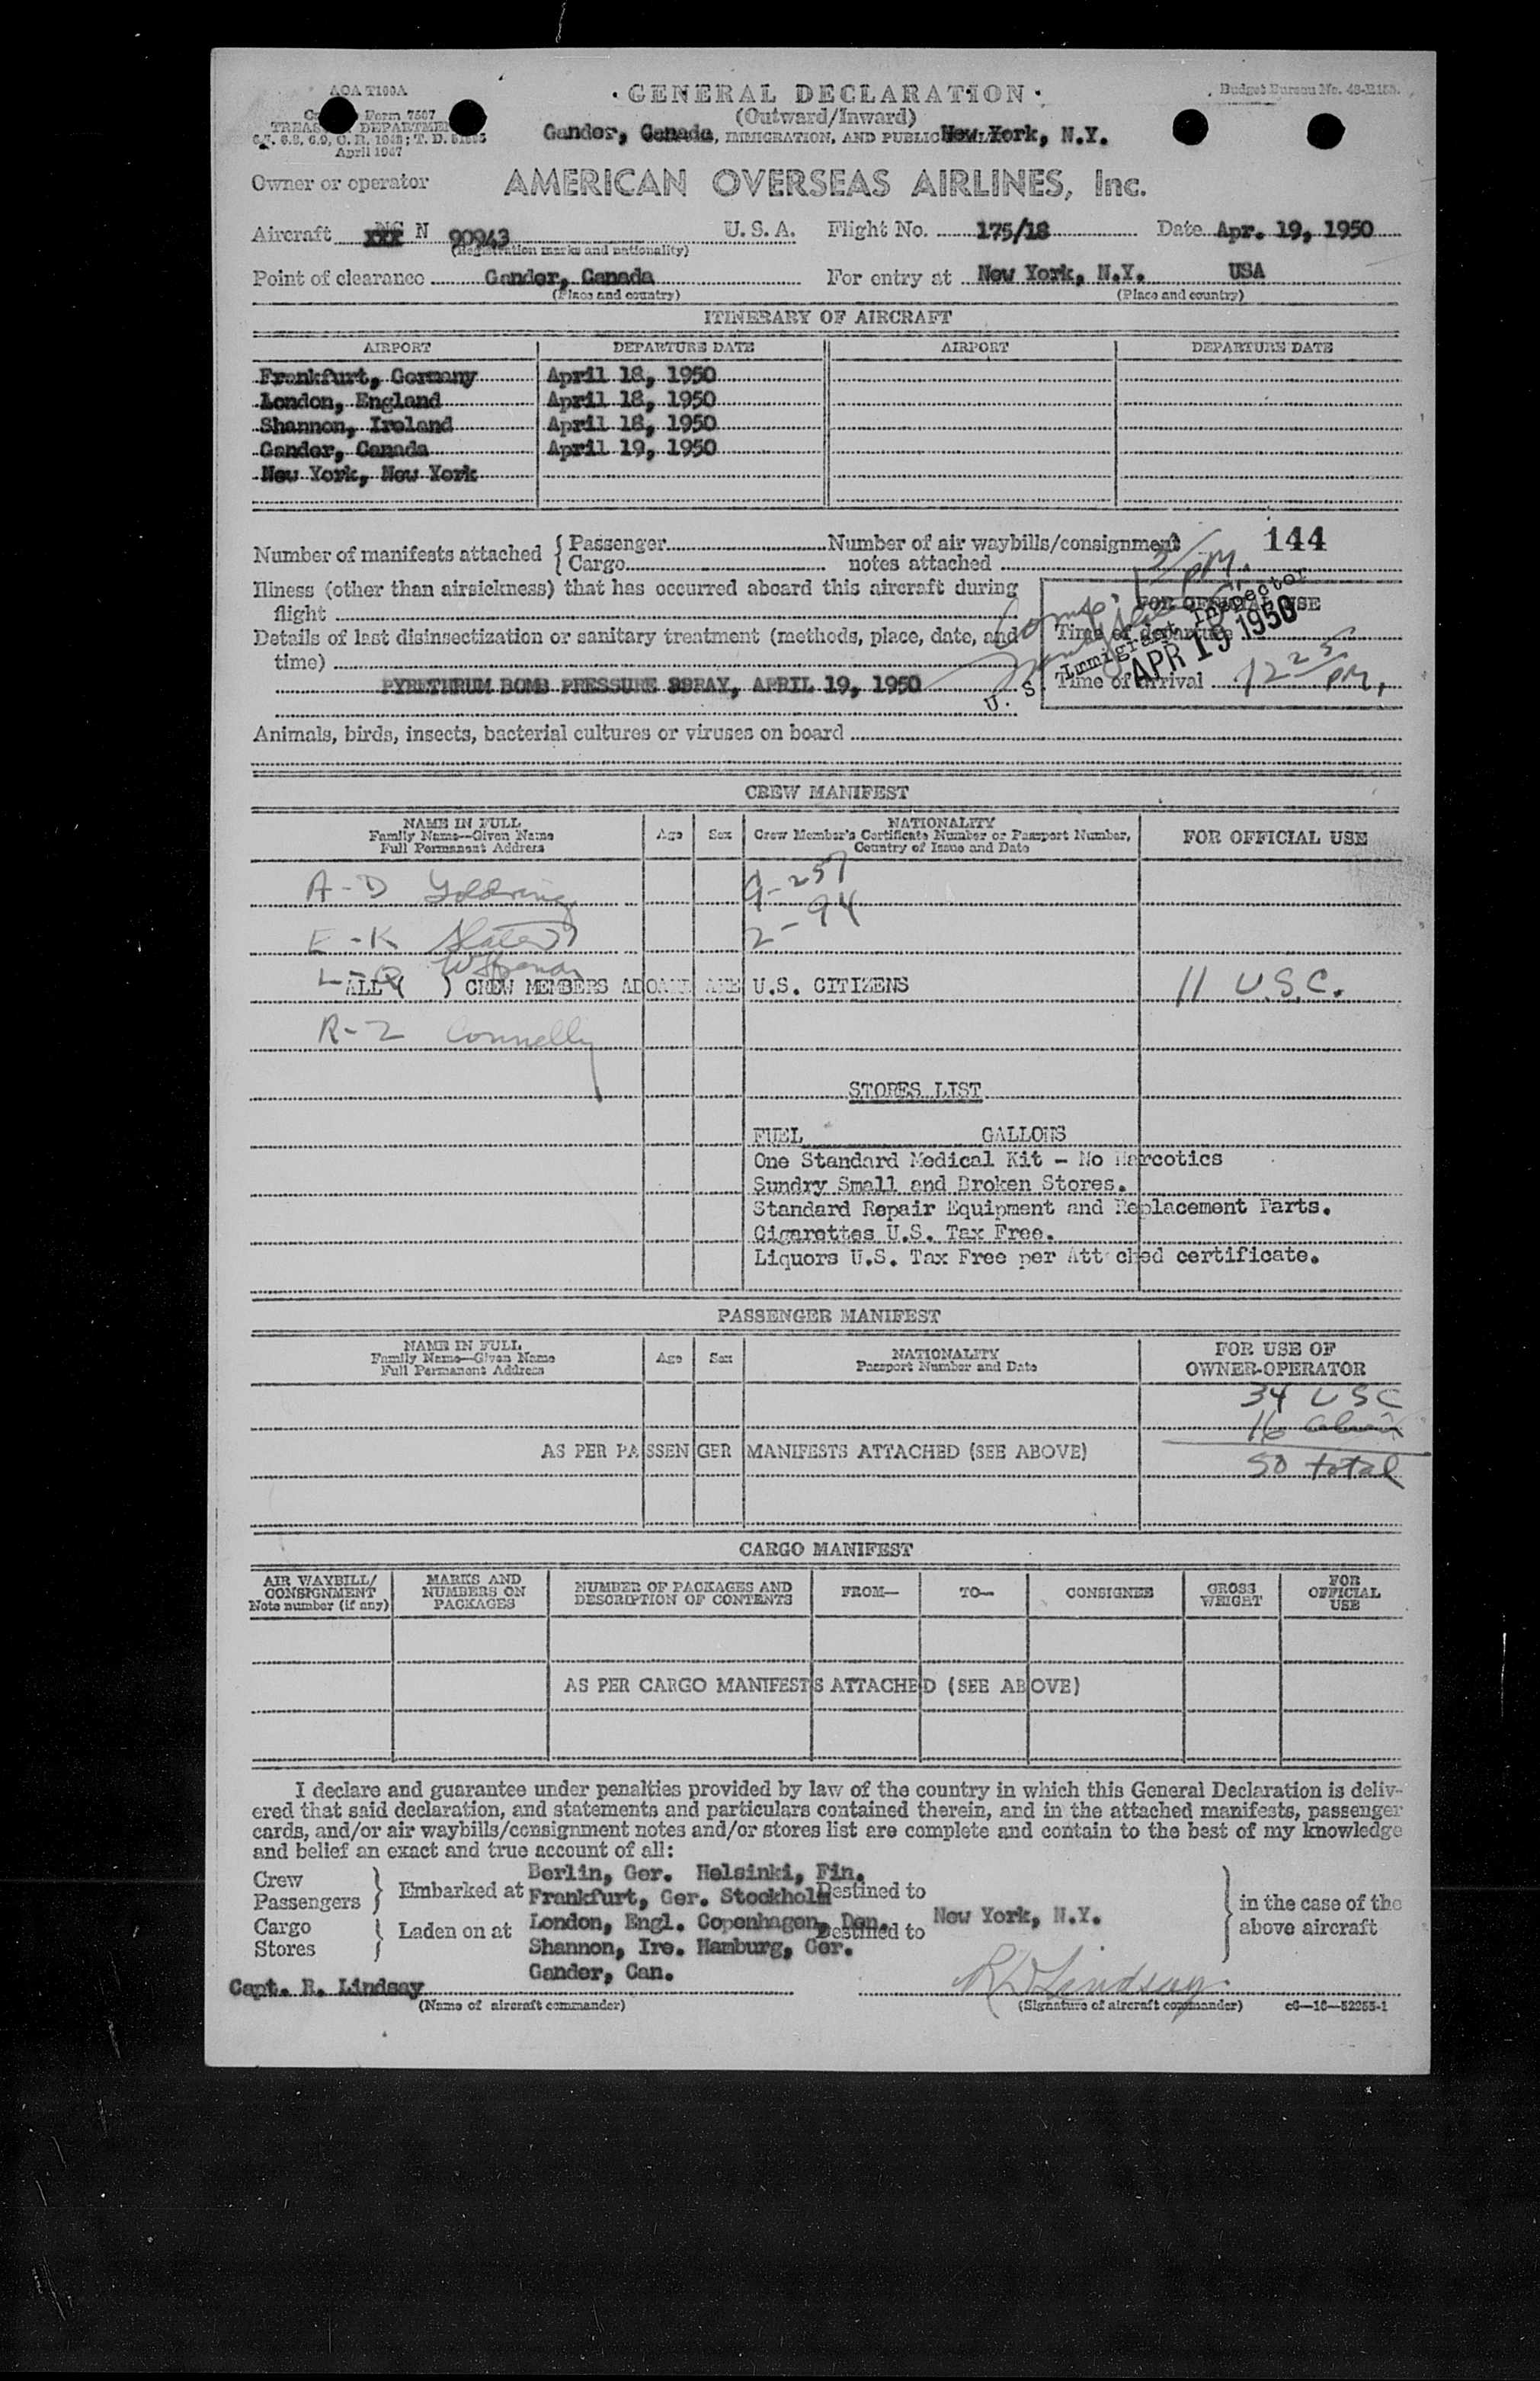 AOA T100A
· GENERAL DECLARATION ·
Budget Bureau No.
Form 7507
(Outward/Inward)
TREASURY DEPARTMENT
Gander, Canada, IMMIGRATION, AND PUBLIC New York, N.Y.
April 1947
Owner or operator AMERICAN OVERSEAS AIRLINES, Inc.
Aircraft XXX N 90943 U. S. A. Flight No. 175/18 Date Apr. 19, 1950
(Registration marks and nationality)
Point of clearance Gander, Canada For entry at New York, N.Y. USA
(Place and country) (Place and country)
ITINERARY OF AIRCRAFT
AIRPORT DEPARTURE DATE AIRPORT DEPARTURE DATE
Frankfurt, Germany April 18, 1950
London, England April 18, 1950
Shannon, Ireland April 18, 1950
Gander, Canada April 19, 1950
New York, New York
Number of manifests attached { Passenger Number of air waybills/consignment 144
Cargo notes attached
Illness (other than airsickness) that has occurred aboard this aircraft during
flight
FOR OFFICIAL USE
Details of last disinsectization or sanitary treatment (methods, place, date, and
Time of departure
time)
U. S. Immigrant Inspector
APR 19 1950
PYRETHRUM BOMB PRESSURE SPRAY, APRIL 19, 1950
Time of arrival 12 25 PM.
Animals, birds, insects, bacterial cultures or viruses on board
CREW MANIFEST
NAME IN FULL
Family Name—Given Name
Full Permanent Address
Age Sex
NATIONALITY
Crew Member's Certificate Number or Passport Number,
Country of Issue and Date
FOR OFFICIAL USE
A - D Goldring 9-257
E - K Slater 2-94
L - Q
ALL ( ) CREW MEMBERS ABOARD ARE U.S. CITIZENS 11 U.S.C.
R - Z Connelly
STORES LIST
FUEL GALLONS
One Standard Medical Kit - No Narcotics
Sundry Small and Broken Stores.
Standard Repair Equipment and Replacement Parts.
Cigarettes U.S. Tax Free.
Liquors U.S. Tax Free per Attached certificate.
PASSENGER MANIFEST
NAME IN FULL
Family Name—Given Name
Full Permanent Address
Age Sex
NATIONALITY
Passport Number and Date
FOR USE OF
OWNER-OPERATOR
34 USC
16 alien
AS PER PASSENGER MANIFESTS ATTACHED (SEE ABOVE)
50 total
CARGO MANIFEST
AIR WAYBILL/
CONSIGNMENT
Note number (if any)
MARKS AND
NUMBERS ON
PACKAGES
NUMBER OF PACKAGES AND
DESCRIPTION OF CONTENTS
FROM— TO— CONSIGNEE
GROSS
WEIGHT
FOR
OFFICIAL
USE
AS PER CARGO MANIFESTS ATTACHED (SEE ABOVE)
I declare and guarantee under penalties provided by law of the country in which this General Declaration is deliv-
ered that said declaration, and statements and particulars contained therein, and in the attached manifests, passenger
cards, and/or air waybills/consignment notes and/or stores list are complete and contain to the best of my knowledge
and belief an exact and true account of all:
Crew
Passengers } Embarked at
Cargo
Stores } Laden on at
Berlin, Ger. Helsinki, Fin.
Frankfurt, Ger. Stockholm Destined to
London, Engl. Copenhagen, Den. Destined to New York, N.Y.
Shannon, Ire. Hamburg, Ger.
Gander, Can.
in the case of the
above aircraft
Capt. R. Lindsay R D Lindsay
(Name of aircraft commander) (Signature of aircraft commander) c6—16—52255-1